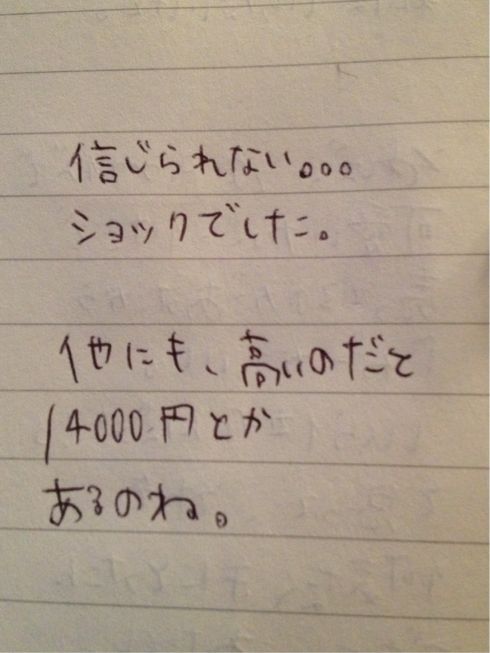 信じられない。。。
ショックでした。
他にも、高いのだと
14000円とか
あるのね。